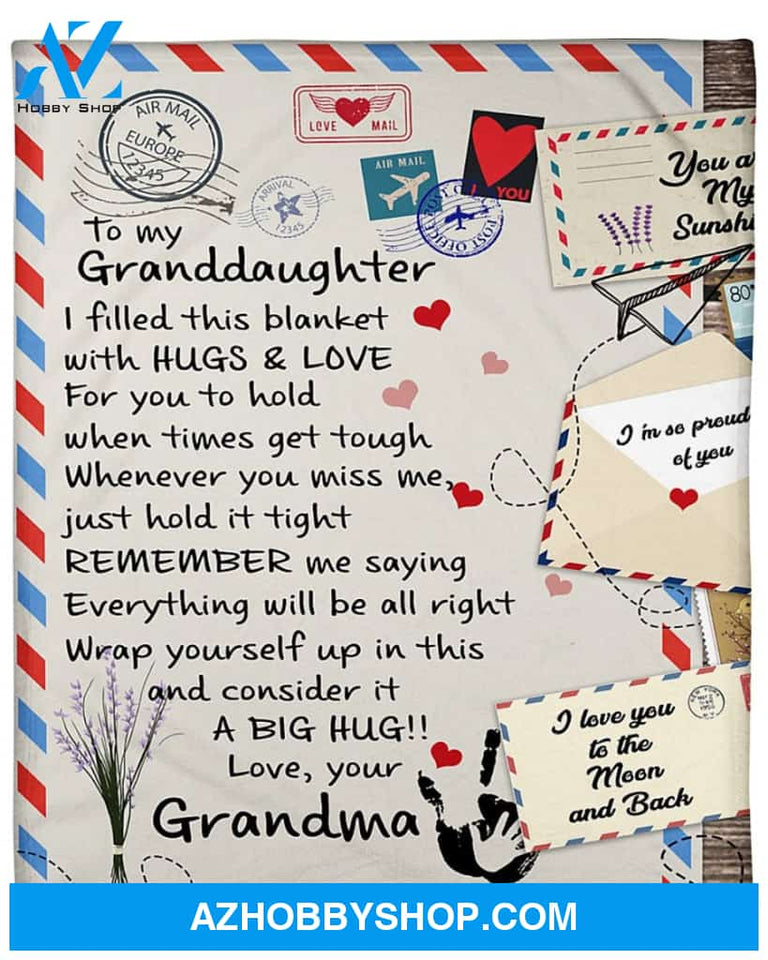 AZ
HOBBY SHOP
AIR MAIL
EUROPE
12345
LOVE MAIL
ARRIVAL
12345
AIR MAIL
I YOU
POST OFFICE
You a
My
Sunshi
80
To my
Granddaughter
I filled this blanket
with HUGS & LOVE
For you to hold
when times get tough
Whenever you miss me,
just hold it tight
REMEMBER me saying
Everything will be all right
Wrap yourself up in this
and consider it
A BIG HUG!!
Love, your
Grandma
I'm so proud
of you
NEW YORK
I love you
to the
Moon
and Back
AZHOBBYSHOP.COM